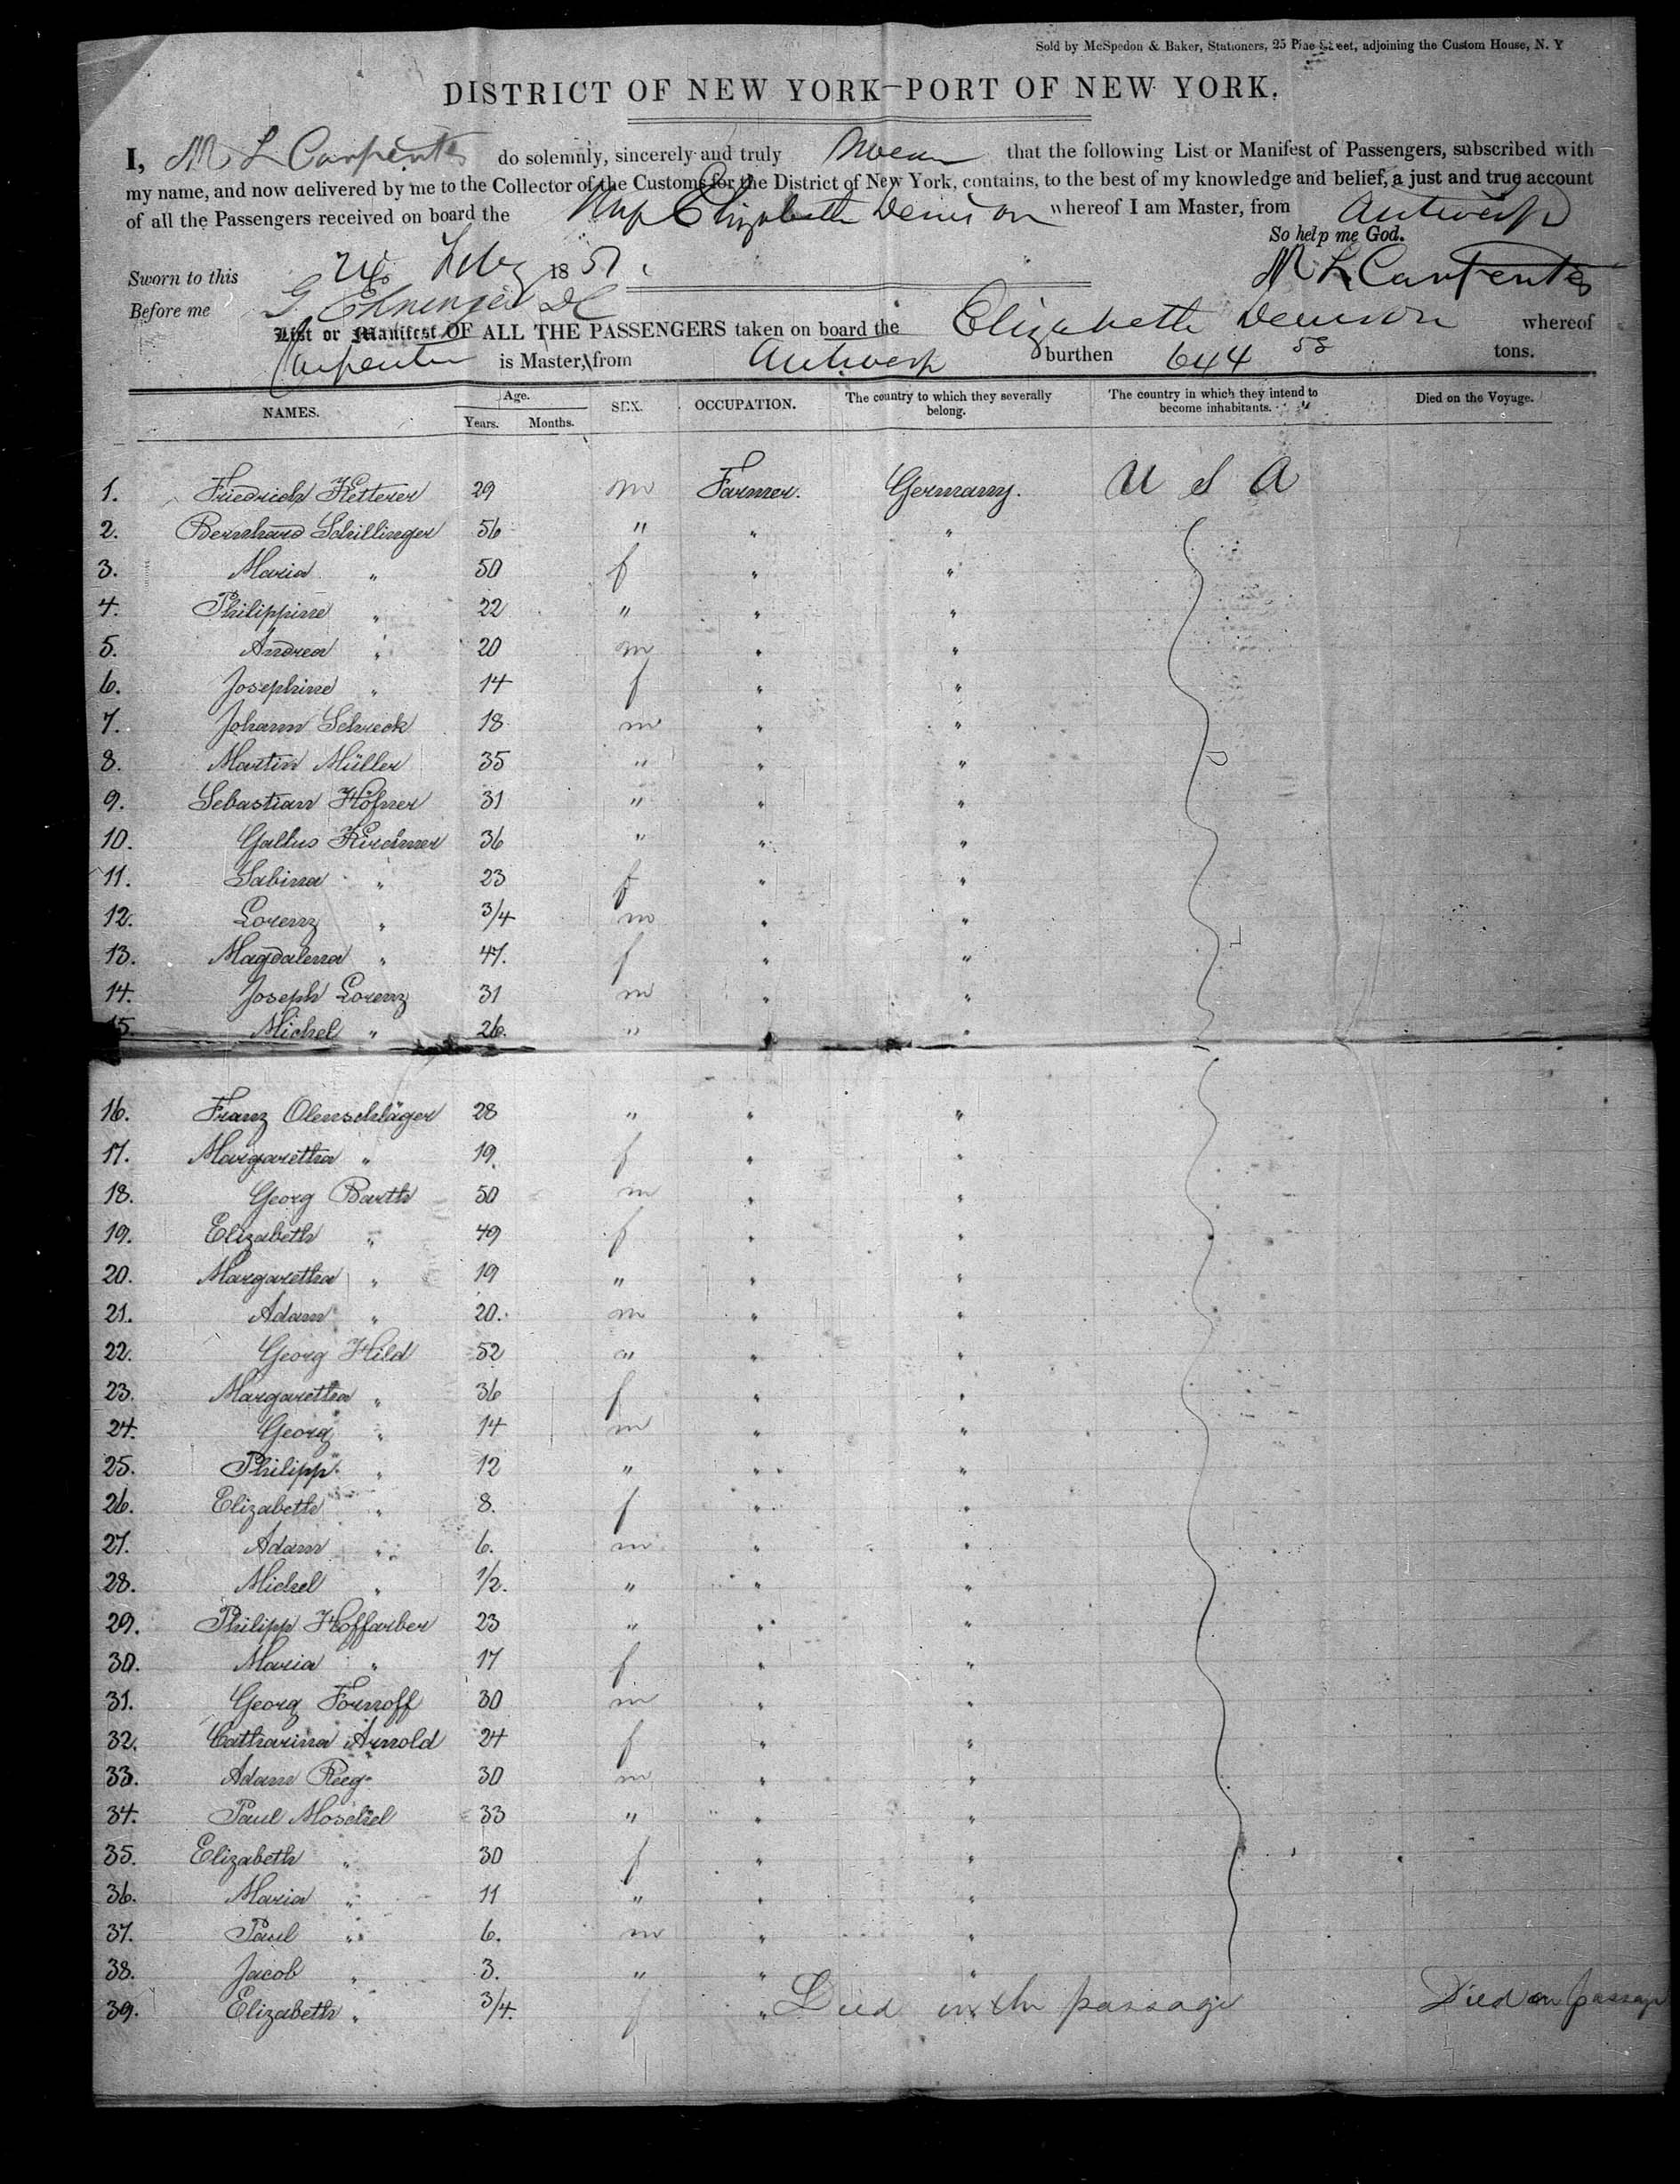 Sold by McSpedon & Baker, Stationers, 25 Pine Street, adjoining the Custom House, N. Y
DISTRICT OF NEW YORK—PORT OF NEW YORK.
I, M L Carpenter do solemnly, sincerely and truly Swear that the following List or Manifest of Passengers, subscribed with
my name, and now delivered by me to the Collector of the Customs for the District of New York, contains, to the best of my knowledge and belief, a just and true account
of all the Passengers received on board the Ship Elizabeth Denison whereof I am Master, from Antwerp
So help me God.
Sworn to this 24 Feby 1851. M L Carpenter
Before me
List or Manifest OF ALL THE PASSENGERS taken on board the Elizabeth Denison whereof
Carpenter is Master, from Antwerp burthen 644 58 tons.
NAMES. Age. Years. Months. SEX. OCCUPATION. The country to which they severally belong. The country in which they intend to become inhabitants. Died on the Voyage.
1. Friedrich Ketterer 29 m Farmer. Germany. U S A
2. Bernhard Schillinger 56 " " "
3. Maria " 50 f " "
4. Philippine " 22 " " "
5. Andrea " 20 m " "
6. Josephine " 14 f " "
7. Johann Schreck 18 m " "
8. Martin Müller 35 " " "
9. Sebastian Höfner 31 " " "
10. Gallus Kirchner 36 " " "
11. Sabina " 23 f " "
12. Lorenz " 3/4 m " "
13. Magdalena " 47. f " "
14. Joseph Lorenz 31 m " "
15. Michel " 26. " " "
16. Franz Olenschläger 28 " " "
17. Margaretha " 19. f " "
18. Georg Barth 50 m " "
19. Elizabeth " 49 f " "
20. Margaretha " 19 " " "
21. Adam " 20. m " "
22. Georg Hild 52 " " "
23. Margaretha " 36 f " "
24. Georg " 14 m " "
25. Philipp " 12 " " "
26. Elizabeth " 8. f " "
27. Adam " 6. m " "
28. Michel " 1/2. " " "
29. Philipp Hoffarber 23 " " "
30. Maria " 17 f " "
31. Georg Fornoff 30 m " "
32. Catharina Arnold 24 f " "
33. Adam Reeg 30 m " "
34. Paul Moschel 33 " " "
35. Elizabeth " 30 f " "
36. Maria " 11 " " "
37. Paul " 6. m " "
38. Jacob " 3. " " "
39. Elizabeth " 3/4. f " Died on the passage Died on passage